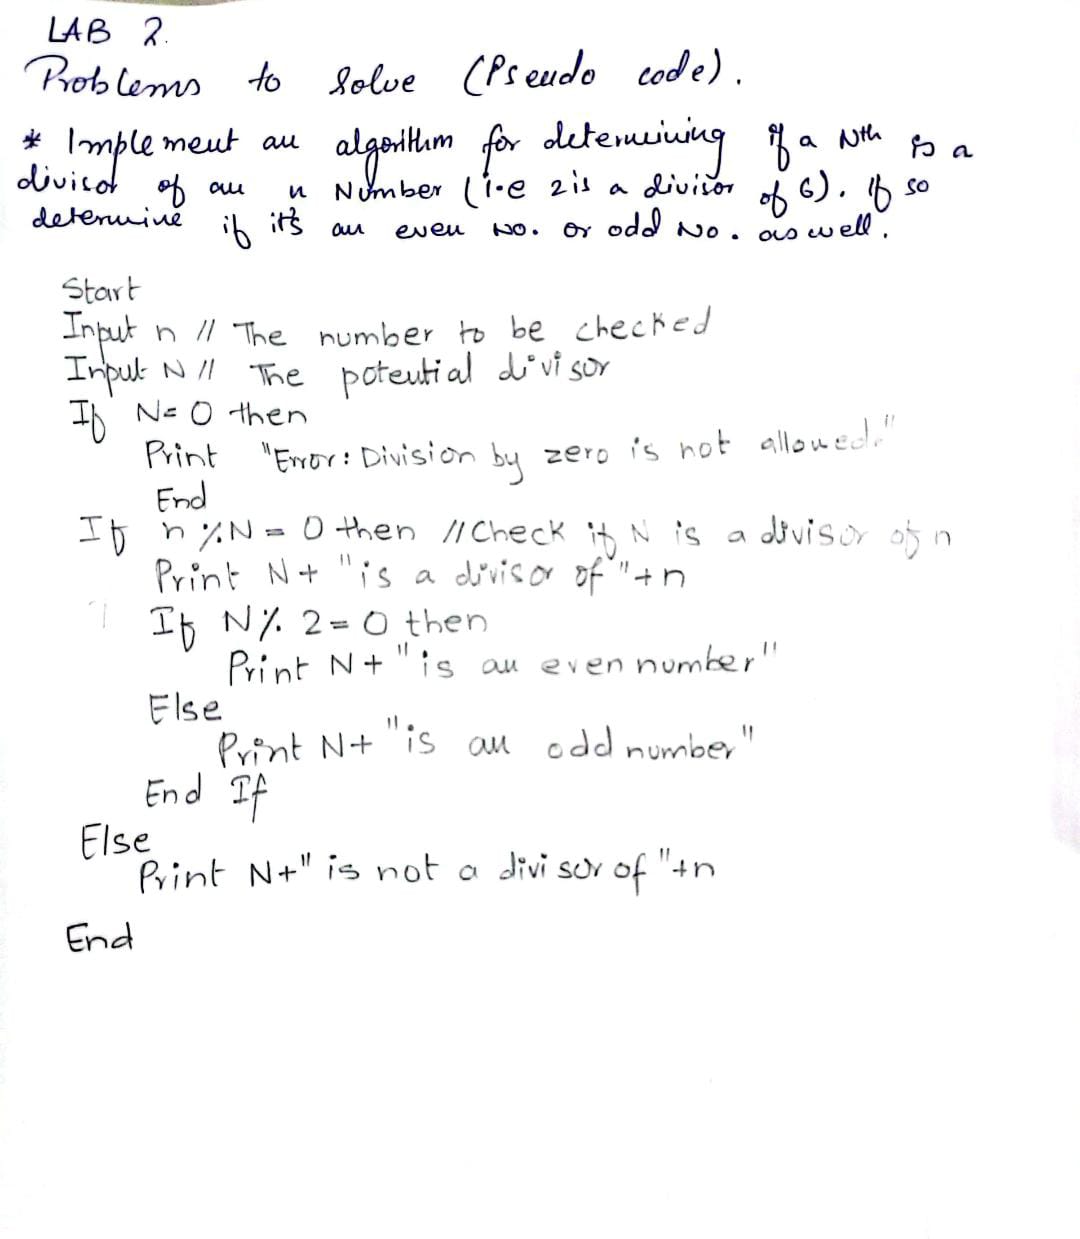 LAB 2.
Problems to Solve (Pseudo code).
* Implement an algorithm for determining if a Nth is a
divisor of an n Number (i.e 2 is a divisor of 6). If so
determine if it's an even No. or odd No. as well.
Start
Input n // The number to be checked
Input N // The potential divisor
If N = 0 then
Print "Error: Division by zero is not allowed."
End
If n % N = 0 then // Check if N is a divisor of n
Print N + "is a divisor of" + n
If N % 2 = 0 then
Print N + "is an even number"
Else
Print N + "is an odd number"
End If
Else
Print N + " is not a divisor of " + n
End